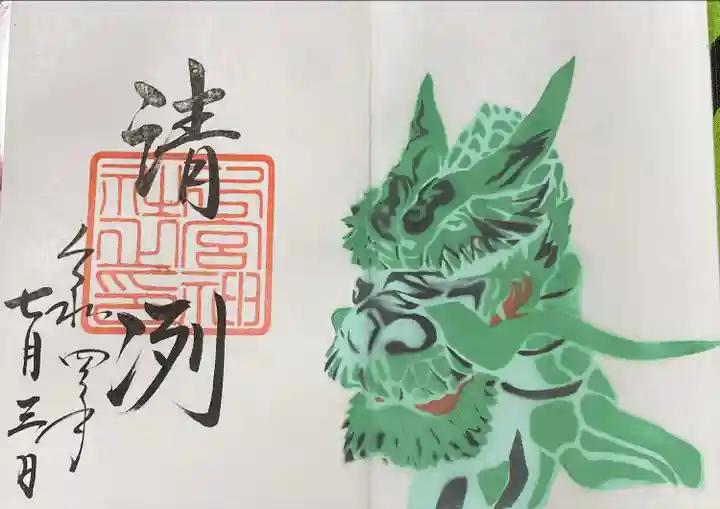 請冽
宮神
社之印
令和四年
七月三日